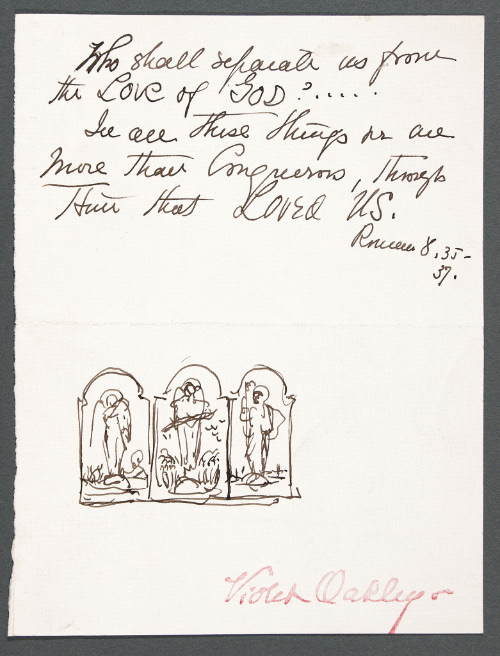 Who shall separate us from
the LOVE of GOD?.....
In all these things we are
More than Conquerors, through
Him that LOVED US.
Romans 8.35-
37.
Violet Oakley